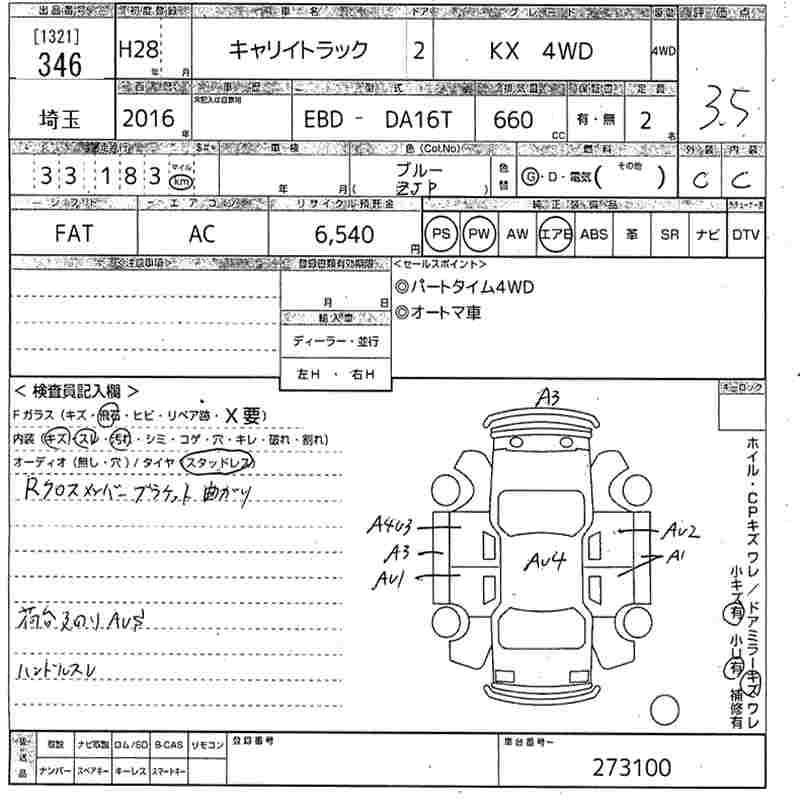 出品番号 初度登録 車名 ドア グレード 駆動 評価点
[1321]
346 H28 年 月 キャリイトラック 2 KX 4WD 4WD 3.5
車歴 型式 排気量 保証書 定員
埼玉 2016 年 未記入は自家用 EBD - DA16T 660 cc 有・無 2 名
走行 車検 色(Col.No) 燃料 外装 内装
33183 マイル km 年 月 ブルー ( ZJP ) 色替 G・D・電気( その他 ) C C
シフト エアコン リサイクル預託金 純正装備品
FAT AC 6,540 円 PS PW AW エアB ABS 革 SR ナビ DTV
注意事項 登録書類有効期限 <セールスポイント>
月 日 ◎パートタイム4WD
輸入車 ◎オートマ車
ディーラー・並行
左H ・ 右H
< 検査員記入欄 > キーロック
Fガラス(キズ・飛石・ヒビ・リペア跡・X要)
内装(キズ・スレ・汚れ・シミ・コゲ・穴・キレ・破れ・割れ)
オーディオ(無し・穴)/タイヤ(スタッドレス)
Rクロスメンバー ブラケット 曲がり
荷台
ハンドルスレ
A3
A4U3
A3
AU1
AU4
AU2
A1
ホイル・CPキズワレ/ドアミラーキズワレ
小キズ有 小U有 補修有
後送品 取説 ナビ取説 ロム/SD B-CAS リモコン 登録番号 車台番号
ナンバー スペアキー キーレス スマートキー 273100